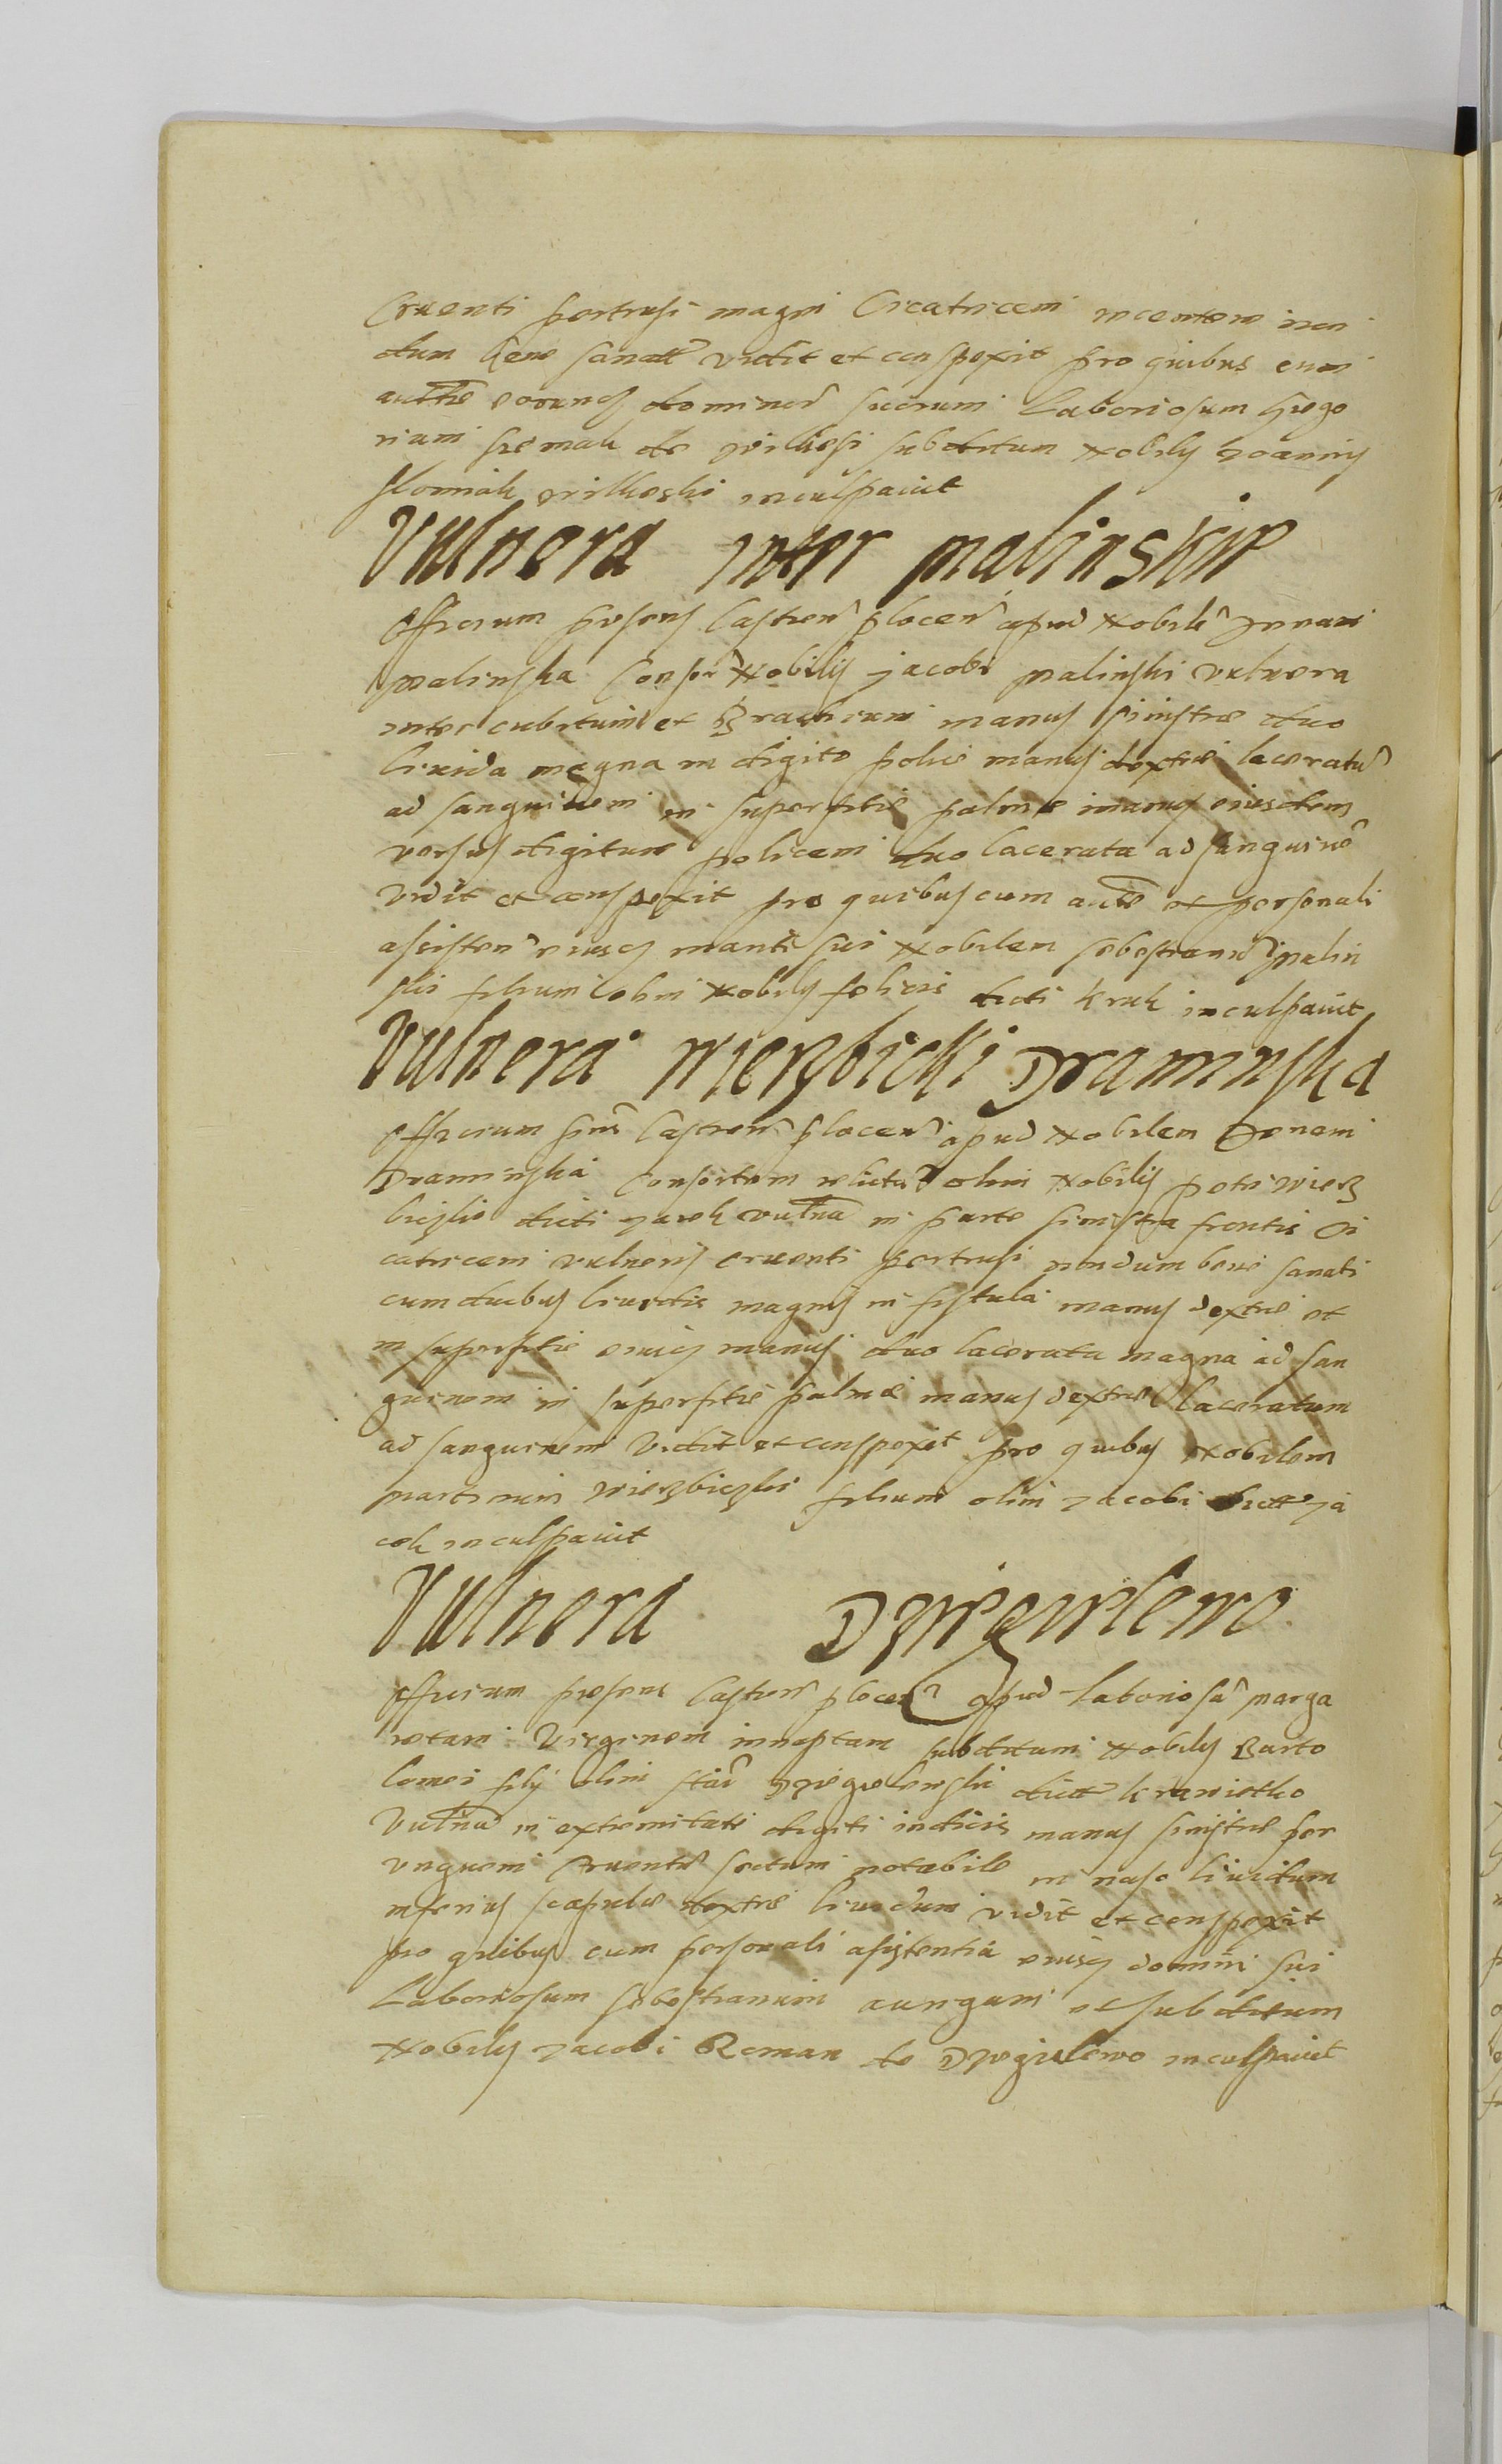 Cruenti pertrusi magni Cicatricem recentem non
dum bene sanatt vidit et conspexit pro quibus cum
autte eorung dominor suorum Laboriosum Grego
rium de subditum Nobilis Joannis
inculpavit
Vulnera inter Malinskie
Officium presens Castren plocen apud Nobile Annam
Malinska Consor Nobilis Jacobi Malinski vulnera
inter cubitum et Brachium manus sinistre duo
livida magna in digito police manus dextre laceratu
ad sanguinem in superfitie palme manus eiusdem
versus digitum policem duo lacerata ad sanguine
vidit et conspexit pro quibus cum autte et personali
asisten eiusq mariti sui Nobilem Sebestianu Malin
ski filium olim Nobilis felicis dicti Kruk inculpavit
Vulnera Wierzbicki Draminska
Officium pns Castren plocen apud Nobilem
Draminska Consortem relicta olim Nobilis petri Wierz
biczkie dicti Jacek vulna in parte sinistra frontis Ci
catricem vulneris cruenti pertrusi nondum bene sanati
cum duobus lividis magnis in fistula manus dextre et
in superfitie eiusq manus duo lacerata magna ad san
guinem in superfitie palme manus dextre laceratum
ad sanguinem vidit et conspexit pro quibus Nobilem
Martinum Wierzbiczki filium olim Jacobi dictte Ja
cek inculpavit
Vulnera Dzięgielewo
Officium presens Castren plocen apud laboriosa Marga
retam Virginem innuptam subditam Nobilis Barto
lomei filÿ olim Dziegelewski dictt krawietko
Vulna in extremitate digiti indicis manus sinistre per
unguem Cruentu sectum notabile in naso lividum
inferius scapule dextre lividum vidit et conspexit
pro quibus cum personali asistentia eiusq domini sui
Laboriosum Sebestianum et subditum
Nobilis Jacobi Roman de Dzegielewo inculpavit